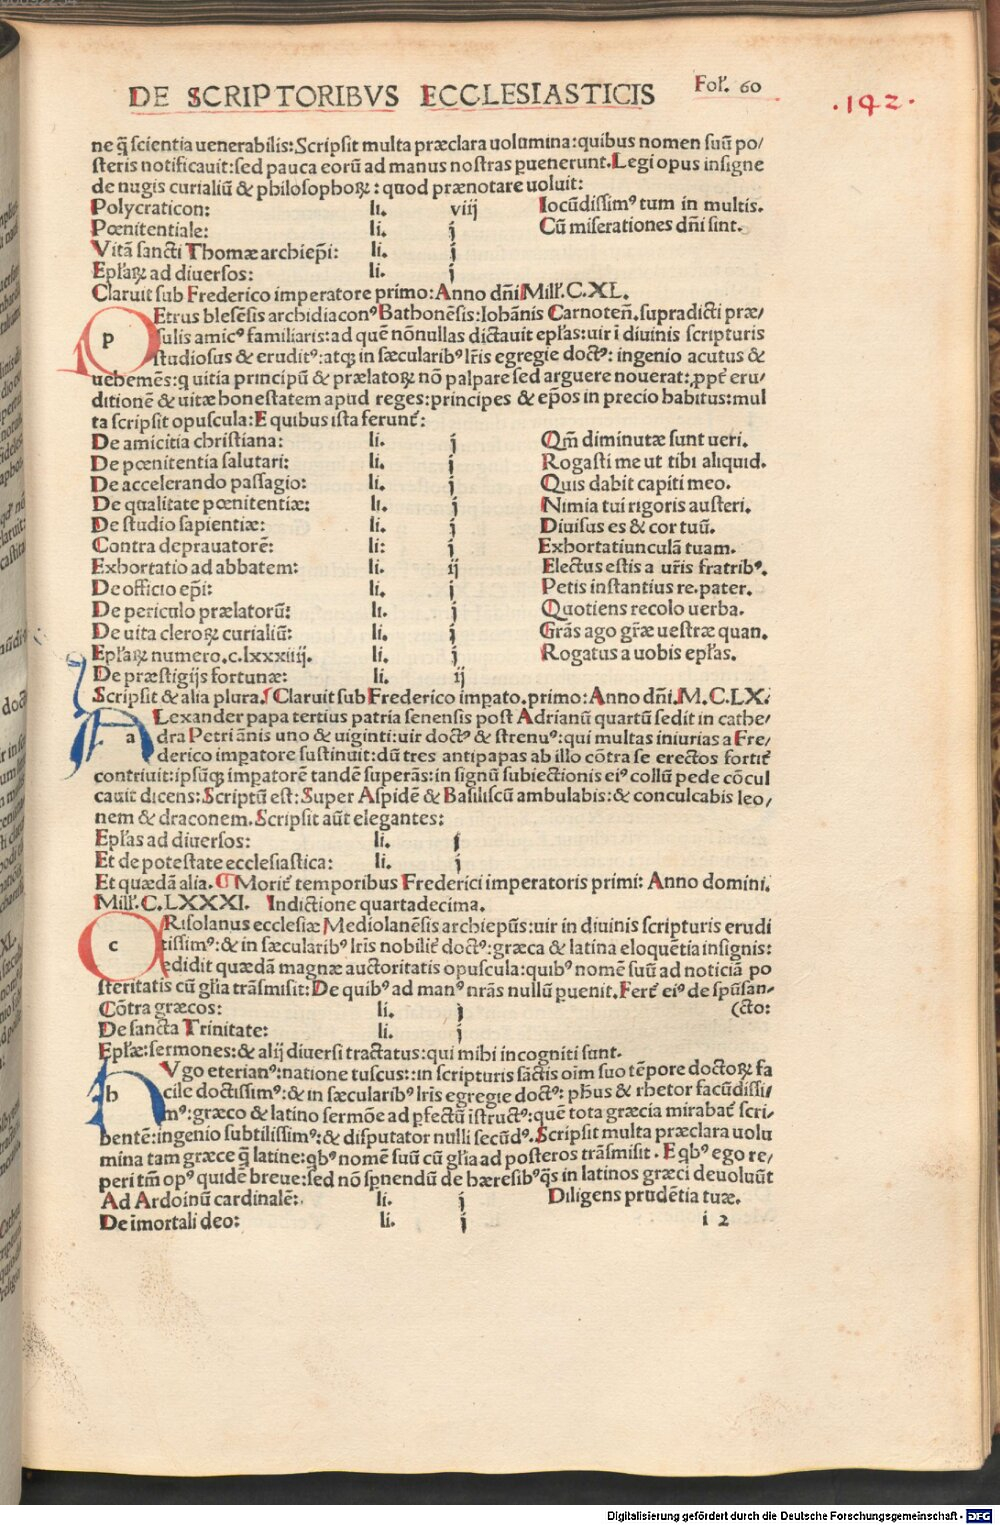 DE SCRIPTORIBVS ECCLESIASTICIS Fol. 60
.192.
ne q̄ scientia uenerabilis: Scripsit multa præclara uolumina: quibus nomen suū po/
steris notificauit: sed pauca eorū ad manus nostras ꝑuenerunt. Legi opus insigne
de nugis curialiū & philosophoꝝ: quod prænotare uoluit:
Polycraticon: li. viij Iocūdissimꝰ tum in multis.
Pœnitentiale: li. j Cū miserationes dn̄i sint.
Vitā sancti Thomæ archiepi̅: li. j
Epl̄aꝝ ad diuersos: li. j
Claruit sub Frederico imperatore primo: Anno dn̄i Mill'. C. XL.
p Etrus blesēsis archidiaconꝰ Bathonēsis: Iohānis Carnoteñ. supradicti præ/
sulis amicꝰ familiaris: ad quē nōnullas dictauit epl̄as: uir ī diuinis scripturis
studiosus & eruditꝰ: atqꝫ in sæcularibꝰ lr̄is egregie doctꝰ: ingenio acutus &
uehemēs: q uitia principū & prælatoꝝ nō palpare sed arguere nouerat: ꝓpt̄ eru/
ditionē & uitæ honestatem apud reges: principes & ep̄os in precio habitus: mul
ta scripsit opuscula: E quibus ista ferunt̄:
De amicitia christiana: li. j Qm̄ diminutæ sunt ueri.
De pœnitentia salutari: li. j Rogasti me ut tibi aliquid.
De accelerando passagio: li. j Quis dabit capiti meo.
De qualitate pœnitentiæ: li. j Nimia tui rigoris austeri.
De studio sapientiæ: li. j Diuisus es & cor tuū.
Contra deprauatorē: li: j Exhortatiunculā tuam.
Exhortatio ad abbatem: li. ij Electus estis a ur̄is fratribꝰ.
De officio ep̄i: li. j Petis instantius re. pater.
De periculo prælatorū: li. j Quotiens recolo uerba.
De uita cleroꝝ curialiū: li. j Grā̄s ago gr̄æ uestræ quan.
Epl̄aꝝ numero. c. lxxxiiij. li. j Rogatus a uobis epl̄as.
De præstigijs fortunæ: li. ij
Scripsit & alia plura. ¶ Claruit sub Frederico imꝑato. primo: Anno dn̄i. M. C. LX.
a Lexander papa tertius patria senensis post Adrianū quartū sedit in cathe/
dra Petri ānis uno & uiginti: uir doctꝰ & strenuꝰ: qui multas iniurias a Fre/
derico imꝑatore sustinuit: dū tres antipapas ab illo cōtra se erectos fortit̄
contriuit: ipsūqꝫ imꝑatorē tandē superās: in signū subiectionis eiꝰ collū pede cōcul
cauit dicens: Scriptū est: Super Aspidē & Basiliscū ambulabis: & conculcabis leo/
nem & draconem. Scripsit aūt elegantes:
Epl̄as ad diuersos: li. j
Et de potestate ecclesiastica: li. j
Et quædā alia. ¶ Morit̄ temporibus Frederici imperatoris primi: Anno domini.
Mill'. C. LXXXI. Indictione quartadecima.
c Risolanus ecclesiæ Mediolanēsis archiep̄us: uir in diuinis scripturis erudi
tissimꝰ: & in sæcularibꝰ lr̄is nobilit̄ doctꝰ: græca & latina eloquētia insignis:
edidit quædā magnæ auctoritatis opuscula: quibꝰ nomē suū ad noticiā po
steritatis cū gl̄ia trāsmisit: De quibꝰ ad manꝰ nr̄as nullū ꝑuenit. Fert̄ eiꝰ de spūsan-
Cōtra græcos: li. j (cto:
De sancta Trinitate: li. j
Epl̄æ: sermones: & alij diuersi tractatus: qui mihi incogniti sunt.
h Vgo eterianꝰ: natione tuscus:: in scripturis sāctis oīm suo tēpore doctoꝝ fa
cile doctissimꝰ: & in sæcularibꝰ lr̄is egregie doctꝰ: ph̄us & rhetor facūdissi/
mꝰ: græco & latino sermōe ad ꝑfectū īstructꝰ: quē tota græcia mirabat̄ scri/
bentē: ingenio subtilissimꝰ: & disputator nulli secūdꝰ. Scripsit multa præclara uolu
mina tam græce q̄ latine: qbꝰ nomē suū cū gl̄ia ad posteros trāsmisit. E qbꝰ ego re/
peri tm̄ opꝰ quidē breue: sed nō spnendū de hæresibꝰ q̄s in latinos græci deuoluūt
Ad Ardoinū cardinalē: li. j Diligens prudētia tuæ.
De īmortali deo: li. j i 2
Digitalisierung gefördert durch die Deutsche Forschungsgemeinschaft - DFG